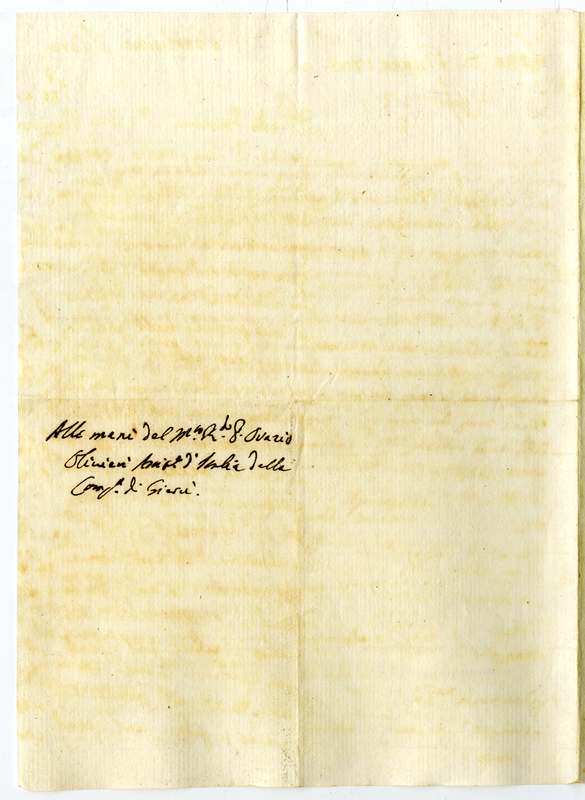 Alle mani del M.to R.do P. Orazio
Olivieri Assist.e d'Italia della
Comp.a di Giesù.